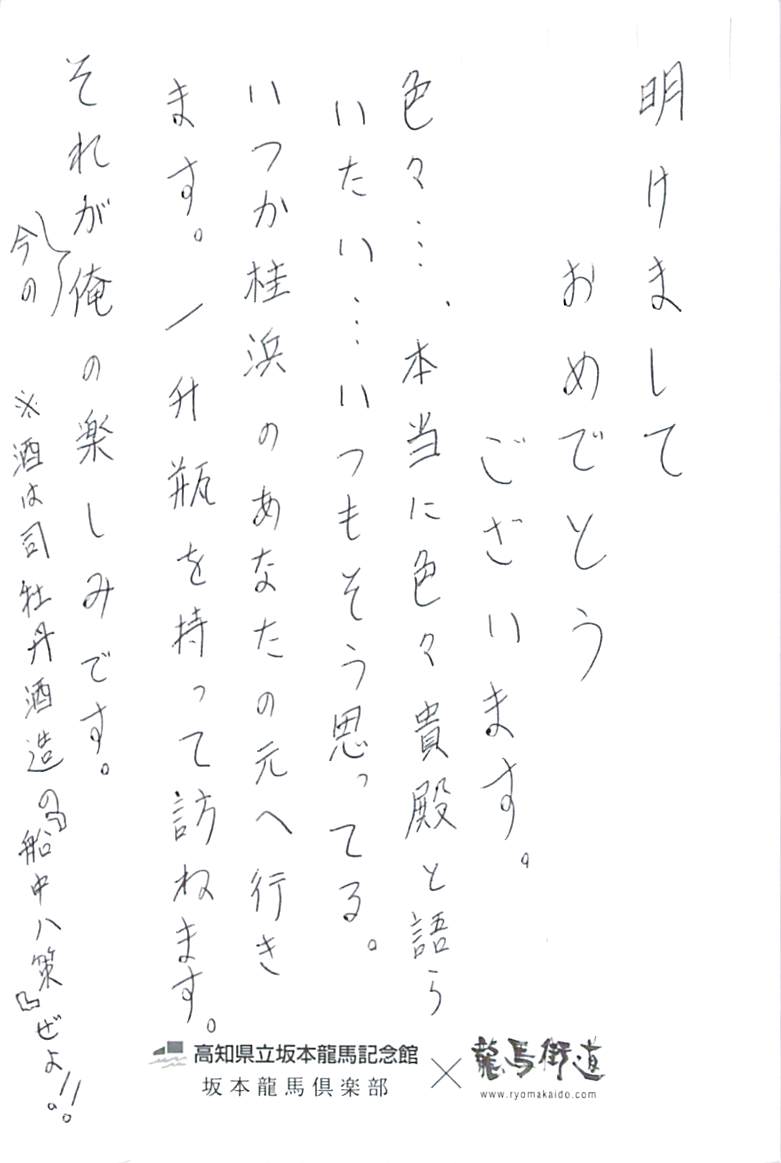 明けまして
おめでとう
ございます。
色々…、本当に色々貴殿と語ら
いたい…いつもそう思ってる。
いつか桂浜のあなたの元へ行き
ます。一升瓶を持って訪ねます。
それが俺の楽しみです。
今の
※酒は司牡丹酒造の『船中八策』ぜよ!!。
高知県立坂本龍馬記念館
坂本龍馬倶楽部
×
龍馬街道
www.ryomakaido.com